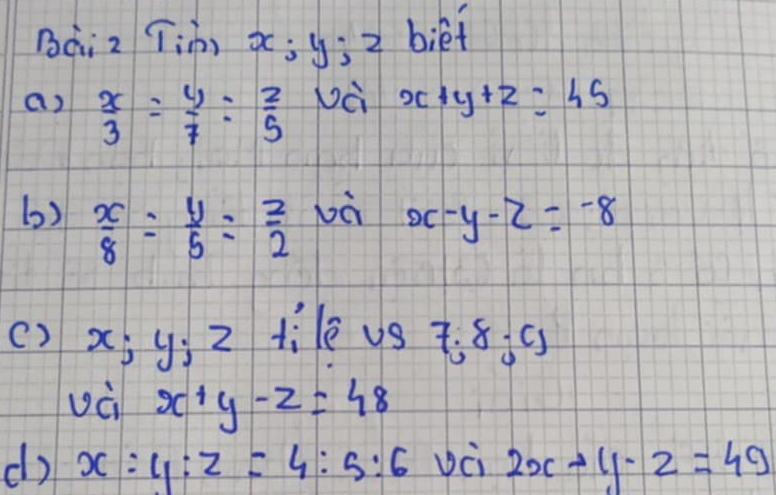 Bài 2 Tìm x; y; z biết
a) x/3 = y/7 = z/5 và x+y+z = 45
b) x/8 = y/5 = z/2 và x-y-z = -8
c) x; y; z tỉ lệ vs 7; 8; 9
và x+y-z = 48
d) x:y:z = 4:5:6 và 2x+y-z = 49